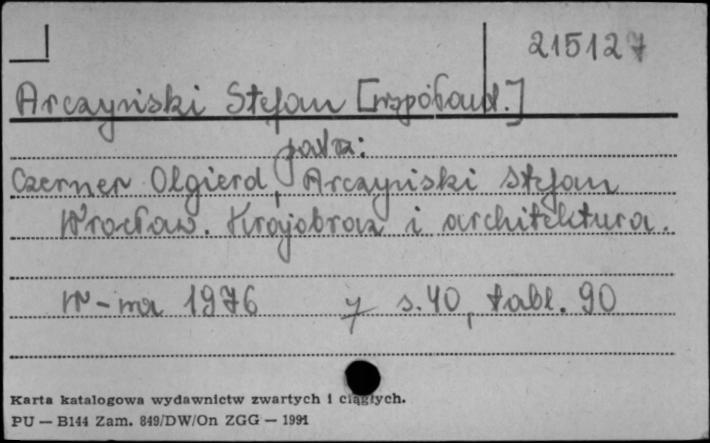 215127
Arczyński Stefan [współaut.]
patrz:
Czerner Olgierd, Arczyński Stefan
Wrocław. Krajobraz i architektura.
W-wa 1976 s. 40, tabl. 90
Karta katalogowa wydawnictw zwartych i ciągłych.
PU — B144 Zam. 849/DW/On ZGG — 1991